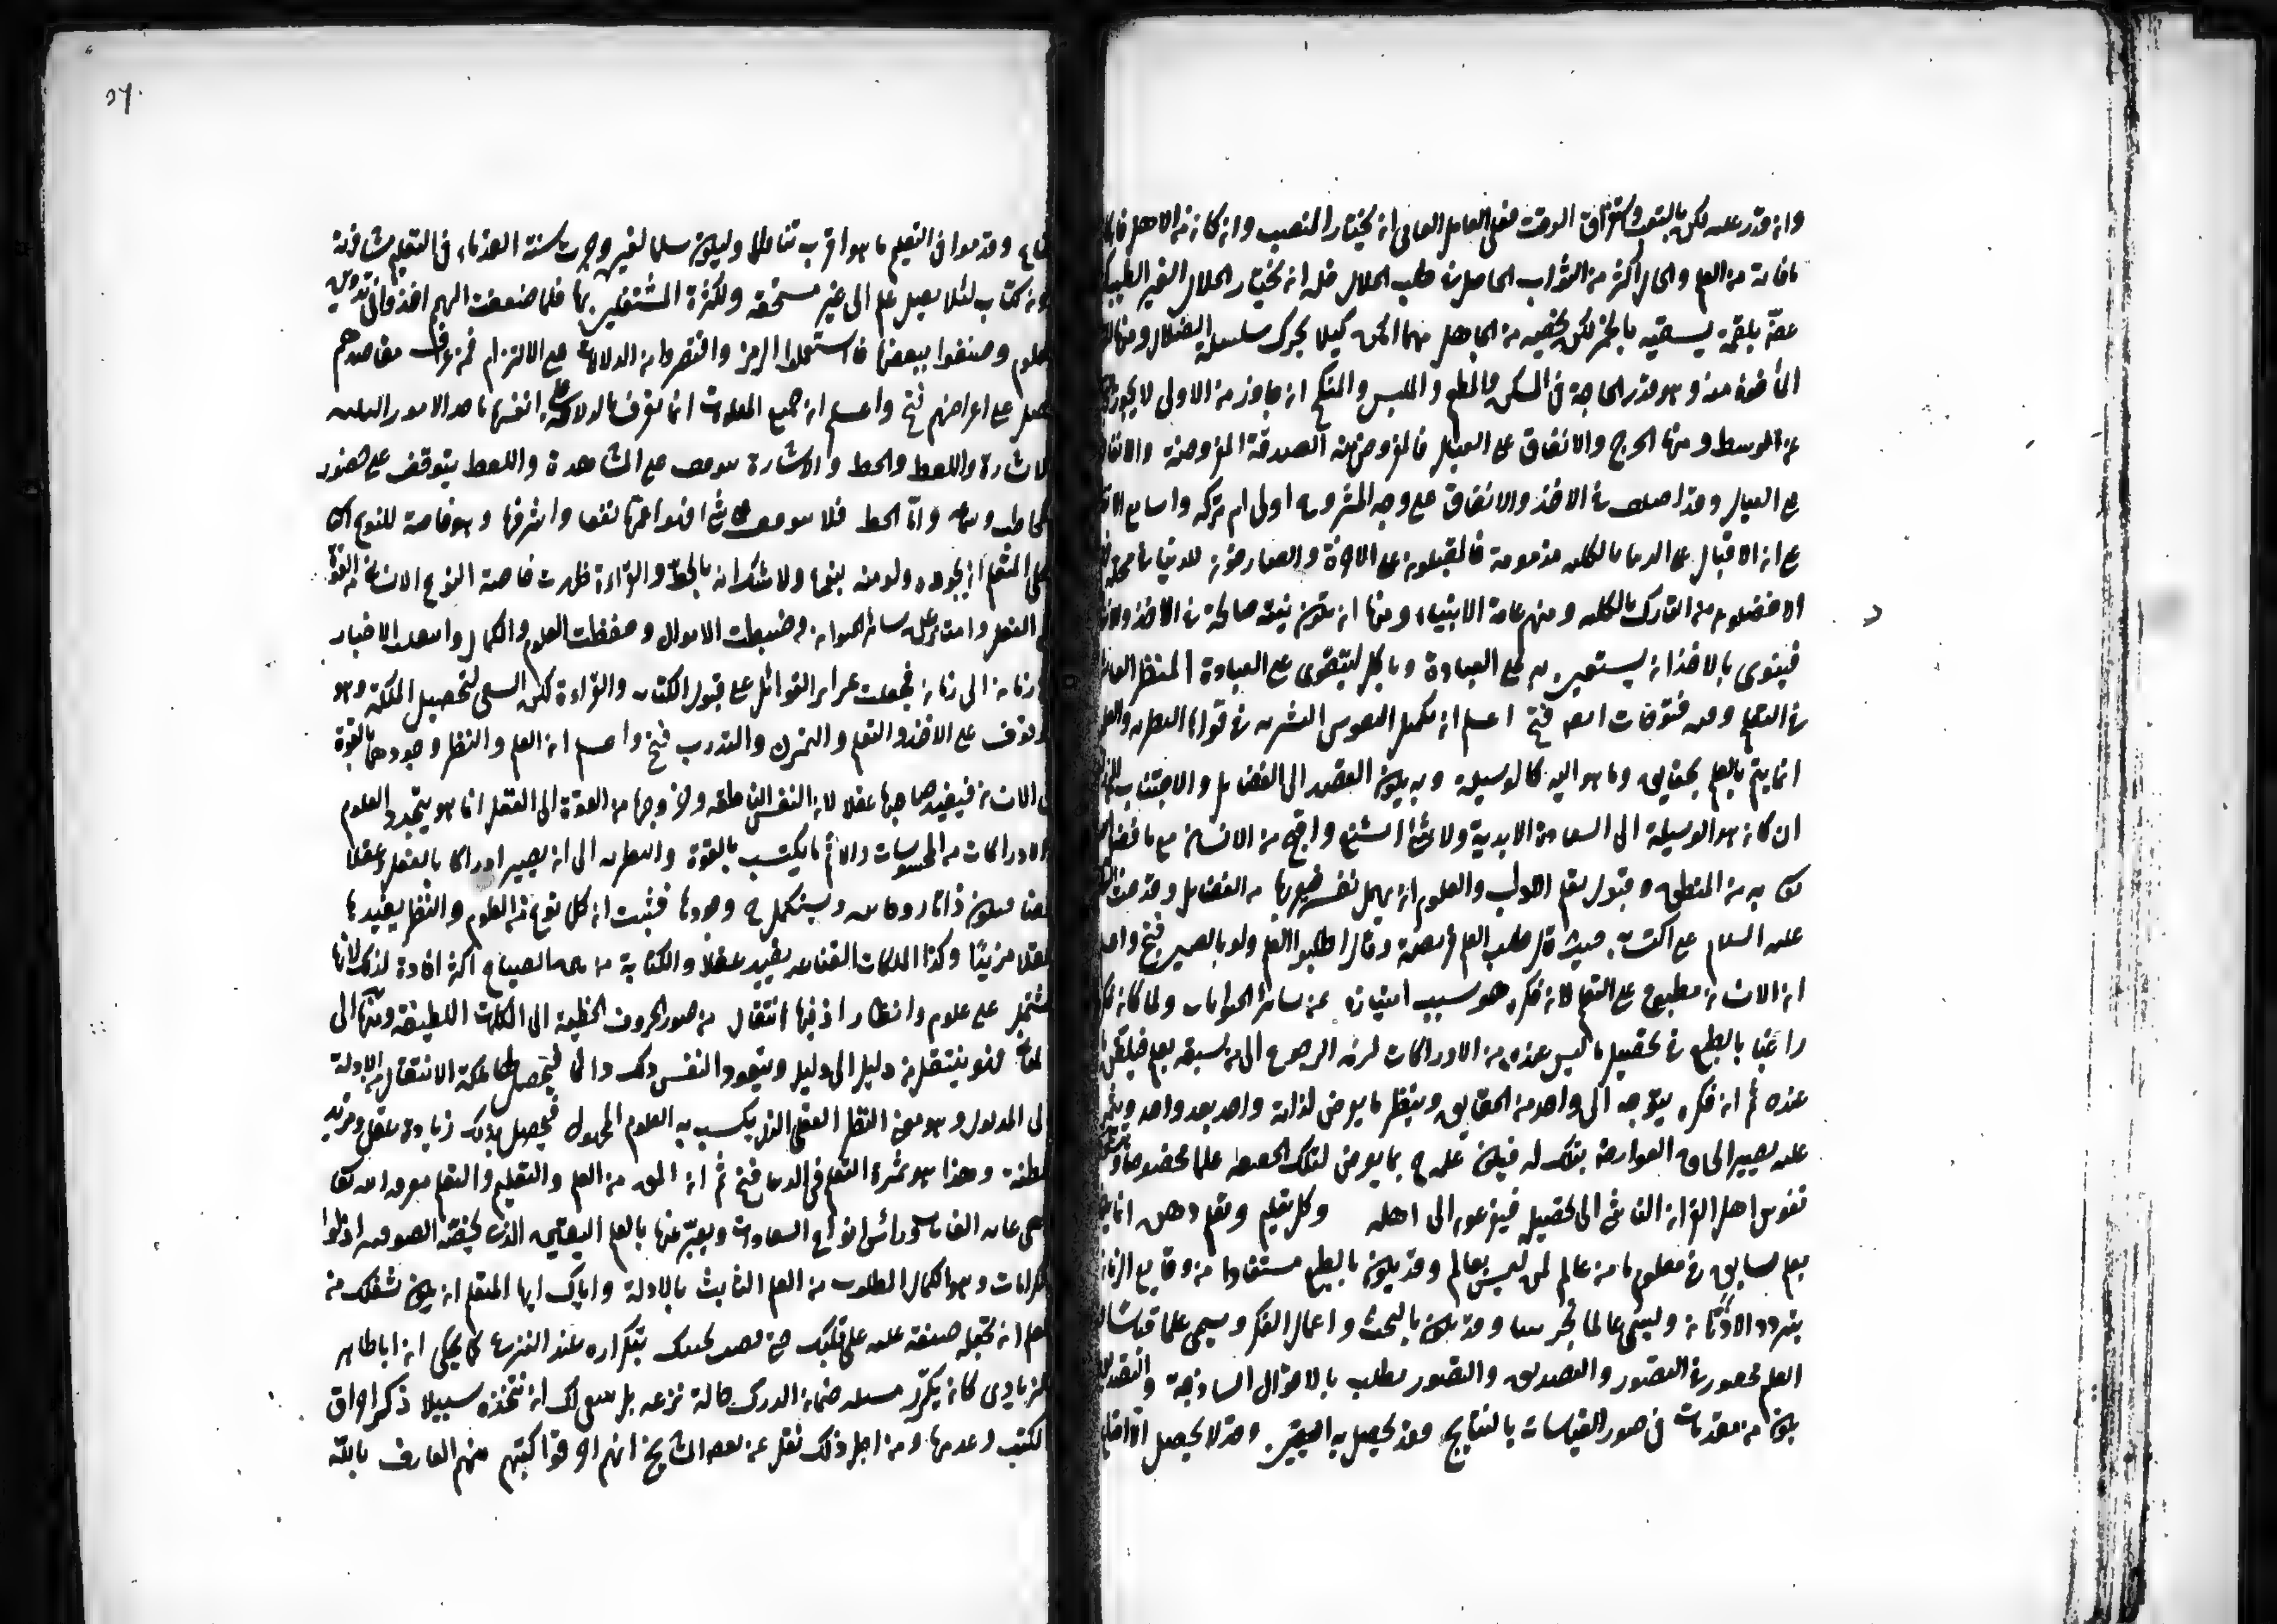 وان قدر عليه لكن بالتعب واستغراق الوقت فعلى العامل العامي ان يختار التعب وان كان من الاهل
ما فاته من العلم والحال اكثر من الثواب الحاصل في طلب الحلال فله ان يختار الحلال الغير الطيب
غصّ بلقمة يسقيه بالخمر لكن يخفيه من الجاهل مهما امكن كيلا يحرك سلسلة الضلال ومنها
المأخوذ منه وهو قدر الحاجة في السكن والمطعم والملبس والمنكح ان جاوز من الاولى لا يجوز
عن الوسط ومنها الخرج والانفاق على العيال فالمفروض منه الصدقة المفروضة والانفاق
على العيال وقد اختلف في الاخذ والانفاق على وجه المشروع اولى ام تركه واسا مع الا
على ان الاقبال على الدنيا بالكلية مذمومة فالمقبلون على الآخرة والصارفون للدنيا في محله
الافضلون من التارك بالكلية ومنهم عامة الانبياء ومنها ان يكون نيته صالحة في الاخذ والا
فينوي بالاخذ ان يستعين به على العبادة وياكل ليتقوى على العبادة المنظر العاشر
في التعلم وفيه فتوحات ايضا فتح اعلم ان تكميل النفوس البشرية في قواها النظرية والعملية
انما يتم بالعلم بحقايق وما هو اليه كالوسيلة وبه يكون القصد الى الفضائل والاجتناب
ان كان هو الوسيلة الى السعادة الابدية ولا شئ اشنع واقبح من الانسان مع ما فضله
به من المنطق وقبول تعلم الاداب والعلوم ان يهمل نفسه ويعريها من الفضائل وقد حث
عليه السلام على اكتسابه حيث قال طلب العلم فريضة وقال اطلبوا العلم ولو بالصين فتح واعلم
ان الانسان مطبوع على التعلم لان فكره هو سبب امتيازه عن سائر الحيوانات ولما كان
راغبا بالطبع في تحصيل ما ليس عنده من الادراكات لزمه الرجوع الى من سبقه بعلم فيتلقى
عنده ثم ان فكره يتوجه الى واحد من الحقايق وينظر ما يعرض لذاته واحد بعد واحد ويتمرن
عليه يصير الحاق العوارض بتلك له فيكون علمه ح بما يعرض لتلك الحقيقة علما مخصوصا
نفوس اهل القرن الناشئ الى تحصيله فيفزعون الى اهله وكل تعليم وتعلم ذهني انما
بعلم سابق في معلوم ما من عالم لمن ليس بعالم وقد يكون بالطبع مستفادا من وقايع الزمان
بتردد الاذهان ويسمى علما تجربيا وقد يكون بالبحث واعمال الفكر ويسمى علما قياسيا
العلم محصور في التصور والتصديق والتصور يطلب بالاقوال الساذجة والتصديق
يكون من مقدمات في صور القياسات بالنتايج فقد يحصل به اليقين وقد لا يحصل الا اقناع
٥٦
وقدموا في التعليم ما هو اقرب تناولا وليكون سلما لغير وجرت سنة القدماء في التعليم مشافهة
دون كتاب لئلا يصل علم الى غير مستحقه ولكثرة المشتغلين بها فلما ضعفت الهمم اخذوا في تدوين
العلوم وصنفوا ببعضها فاستعملوا الرمز واقتصروا من الدلالات على الالتزام فمن عرف مقاصدهم
حصل على اغراضهم فتح واعلم ان جميع المعلومات انما تعرف بالدلالة عليها باحد الامور الثلثة
الاشارة واللفظ والخط والاشارة تتوقف على المشاهدة واللفظ يتوقف على حضور
المخاطب وسماعه واما الخط فلا يتوقف على شئ فهو اعمها نفعا واشرفها وهو خاصة للنوع
على المتعلم ان يجوده ولو منه بنفعها ولا شك انه بالخط والقراءة ظهرت خاصة النوع الانساني من القوة
الى الفعل وامتاز عن سائر الحيوان وضبطت الاموال وحفظت العلوم والكمال وانتقلت الاخبار
من زمان الى زمان فجعلت غرائز القوائل على قبول الكتابة والقراءة لكن السعي لتحصيل الملكة وهو
موقوف على الاخذ والتعلم والتمرن والتدرب فتح واعلم ان العلم والنظر وجودهما بالقوة
في الانسان فيفيد صاحبها عقلا لان النفس الناطقة وخروجها من القوة الى العقل انما هو بتجدد العلوم
والادراكات من المحسوسات والا ثم ما يكتسب بالقوة والنظرية الى ان يصير ادراكا بالفعل وعقلا
محضا فيكون ذاتا روحانية ويستكمل ح وجودها فثبت ان كل نوع من العلوم والنظر يفيدها
عقلا مزيدا وكذا الملكات الصناعية يفيد عقلا والكتابة من بين الصنايع اكثر افادة لذلك لانها
تشتمل على علوم وانظار اذ فيها انتقال من صور الحروف الخطية الى الكلمات اللفظية ومنها الى
المعاني فهو ينتقل من دليل الى دليل ويتعود النفس ذلك دائما فيحصل لها ملكة الانتقال من الادلة
الى المدلول وهو معنى النظر العقلي الذي يكسب به العلوم المجهولة فيحصل بذلك زيادة عقل ومزيد
فطنة وهذا هو ثمرة التعلم في الدنيا فتح ثم ان المق من العلم والتعليم والتعلم معرفة الله تعالى
وهي غاية الغايات ورأس انواع السعادات ويعبر عنها بالعلم اليقيني الذي يخصه الصوفية اولوا
الكرامات وهو الكمال المطلوب من العلم الثابت بالادلة واياك ايها المتعلم ان يكون شغلك من
العلم ان تجعله صنعة غلبت على قلبك حتى قضيت نحبك بتكراره عند النزع كما يحكى ان ابا طاهر
الزيادي كان يكرر مسئلة ضمان الدرك حالة نزعه بل ينبغي لك ان تتخذه سبيلا ذكر احراق
الكتب وعدمها ومن اجل ذلك نقل عن بعض المشايخ انهم احرقوا كتبهم منهم العارف بالله